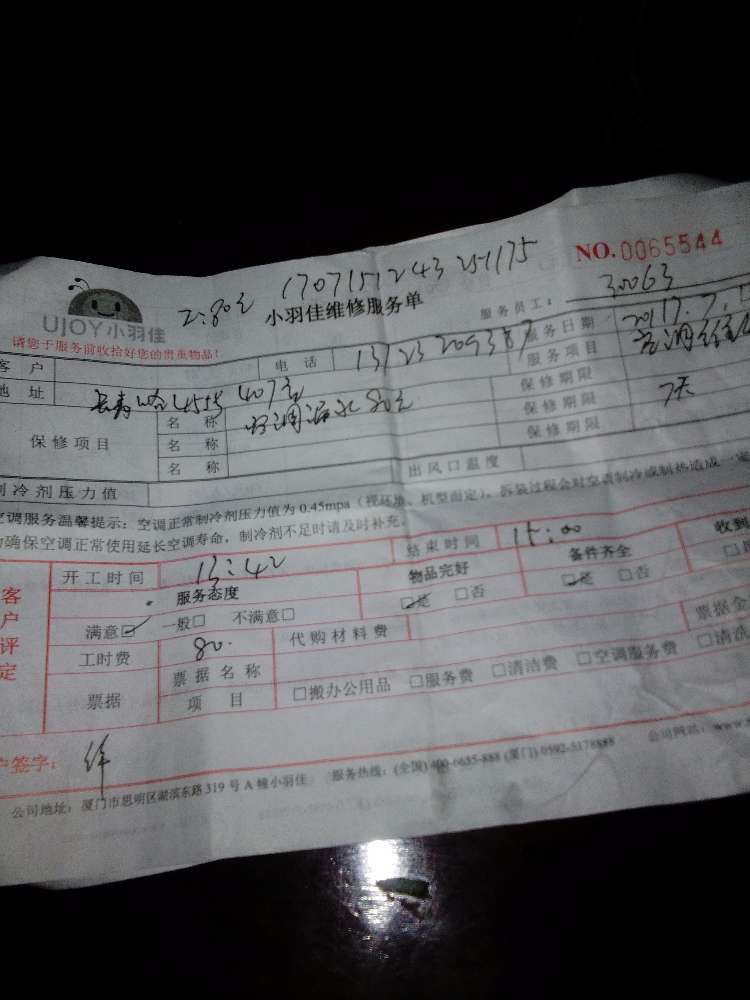 NO.0065544
UJOY小羽佳
80元 1707151243 251175
小羽佳维修服务单
服务员工： 30063
请您于服务前收拾好您的贵重物品！
客 户 电 话 服务日期 2017.7.1
地 址 407 服务项目
保修项目 名 称 空调漏水80元 保修期限
名 称 保修期限 7天
名 称 保修期限
制冷剂压力值 出风口温度
空调服务温馨提示：空调正常制冷剂压力值为 0.45mpa（视环境、机型而定），拆装过程会对空调制冷或制热造成一定
为确保空调正常使用延长空调寿命，制冷剂不足时请及时补充。
客户评定
开工时间 13:42 结束时间 15:00
服务态度 物品完好 备件齐全 收到
满意□ 一般□ 不满意□ □是 □否 □是 □否
工时费 80. 代购材料费 票据金
票据 票据名称
项 目 □搬办公用品 □服务费 □清洁费 □空调服务费 □清洗
户签字：
公司地址：厦门市思明区湖滨东路 319 号 A 幢小羽佳 服务热线：(全国) 400-6655-888 (厦门) 0592-5178888 公司网站：